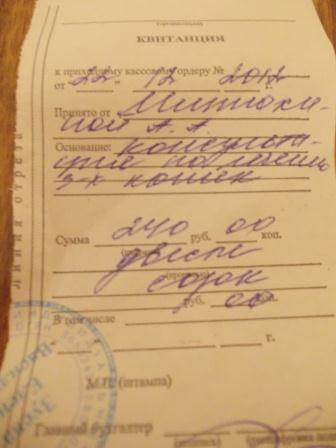 КВИТАНЦИЯ
к приходному кассовому ордеру №
от "22" 12 2012
Принято от Митюхи-
ной А. А.
Основание: консульта-
ция по лечению
3-х кошек
Сумма 240 руб. 00 коп.
двести
сорок
руб. 00 коп.
В том числе
г.
М.П. (штампа)
Главный бухгалтер
(подпись)
линия отреза